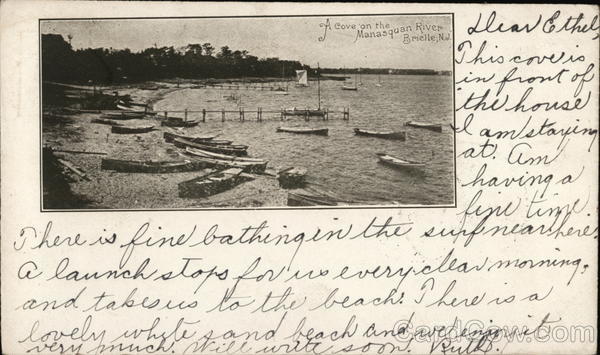 A Cove on the
Manasquan River
Brielle, N.J.
Dear Ethel,
This cove is
in front of
the house
I am staying
at. Am
having a
fine time.
There is fine bathing in the surf near here.
A launch stops for us every clear morning,
and takes us to the beach. There is a
lovely white sand beach and we enjoy it
very much. Will write soon. Ruth.
CardCow.com